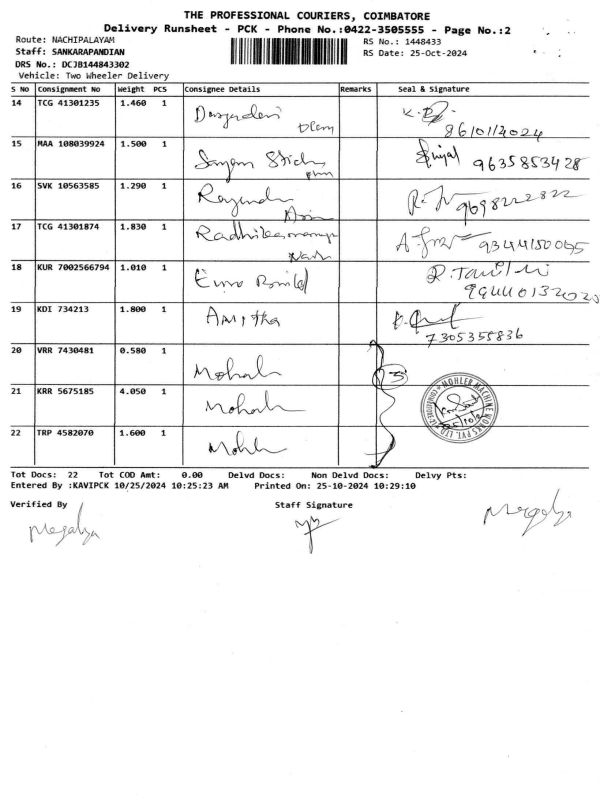 THE PROFESSIONAL COURIERS, COIMBATORE
Delivery Runsheet - PCK - Phone No.:0422-3505555 - Page No.:2
Route: NACHIPALAYAM RS No.: 1448433
Staff: SANKARAPANDIAN RS Date: 25-Oct-2024
DRS No.: DCJB144843302
Vehicle: Two Wheeler Delivery
S No Consignment No Weight PCS Consignee Details Remarks Seal & Signature
14 TCG 41301235 1.460 1
15 MAA 108039924 1.500 1 9635853428
16 SVK 10563585 1.290 1 Rajendra 9698222822
17 TCG 41301874 1.830 1 9344150065
18 KUR 7002566794 1.010 1 Euro Bond
19 KDI 734213 1.800 1 Amrtha 7305355836
20 VRR 7430481 0.580 1 Mohler
21 KRR 5675185 4.050 1 Mohler
22 TRP 4582070 1.600 1 Mohler
3
MOHLER MACHINE WORKS PVT. LTD.
Tot Docs: 22 Tot COD Amt: 0.00 Delvd Docs: Non Delvd Docs: Delvy Pts:
Entered By :KAVIPCK 10/25/2024 10:25:23 AM Printed On: 25-10-2024 10:29:10
Verified By Staff Signature